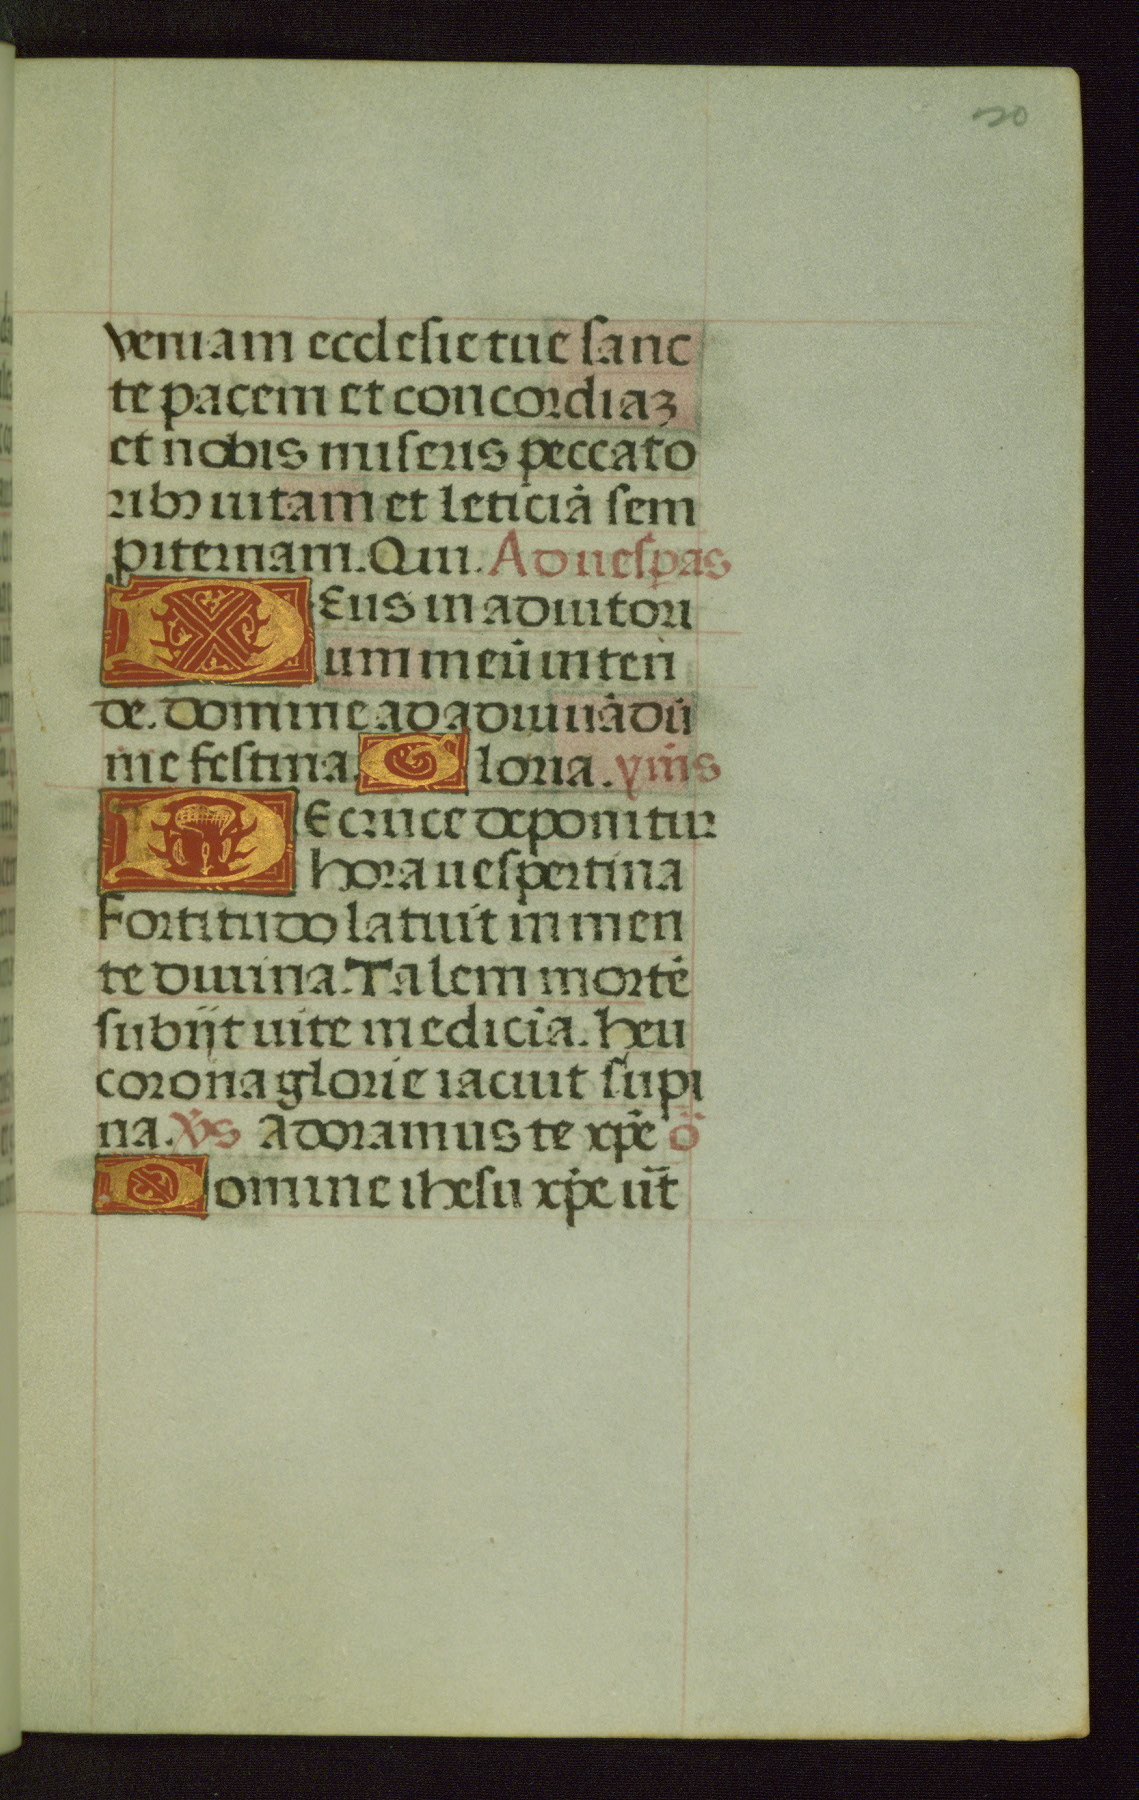 20
veniam ecclesie tue sanc
te pacem et concordiaꝫ
et nobis miseris peccato
ribꝫ uitam et leticiā sem
piternam. Qui. Ad uesꝑas
DEus in adiutori
um meū inten
de. domine ad adiuuādū
me festina. Gloria. yms
DE cruce deponitur
hora uespertina
Fortitudo latuit in men
te diuina. Talem mortē
subijt uite medicīa. heu
corona glorie iacuit supi
na. v̄s Adoramus te xp̄e ō
Domine ihesu xp̄e ut̄